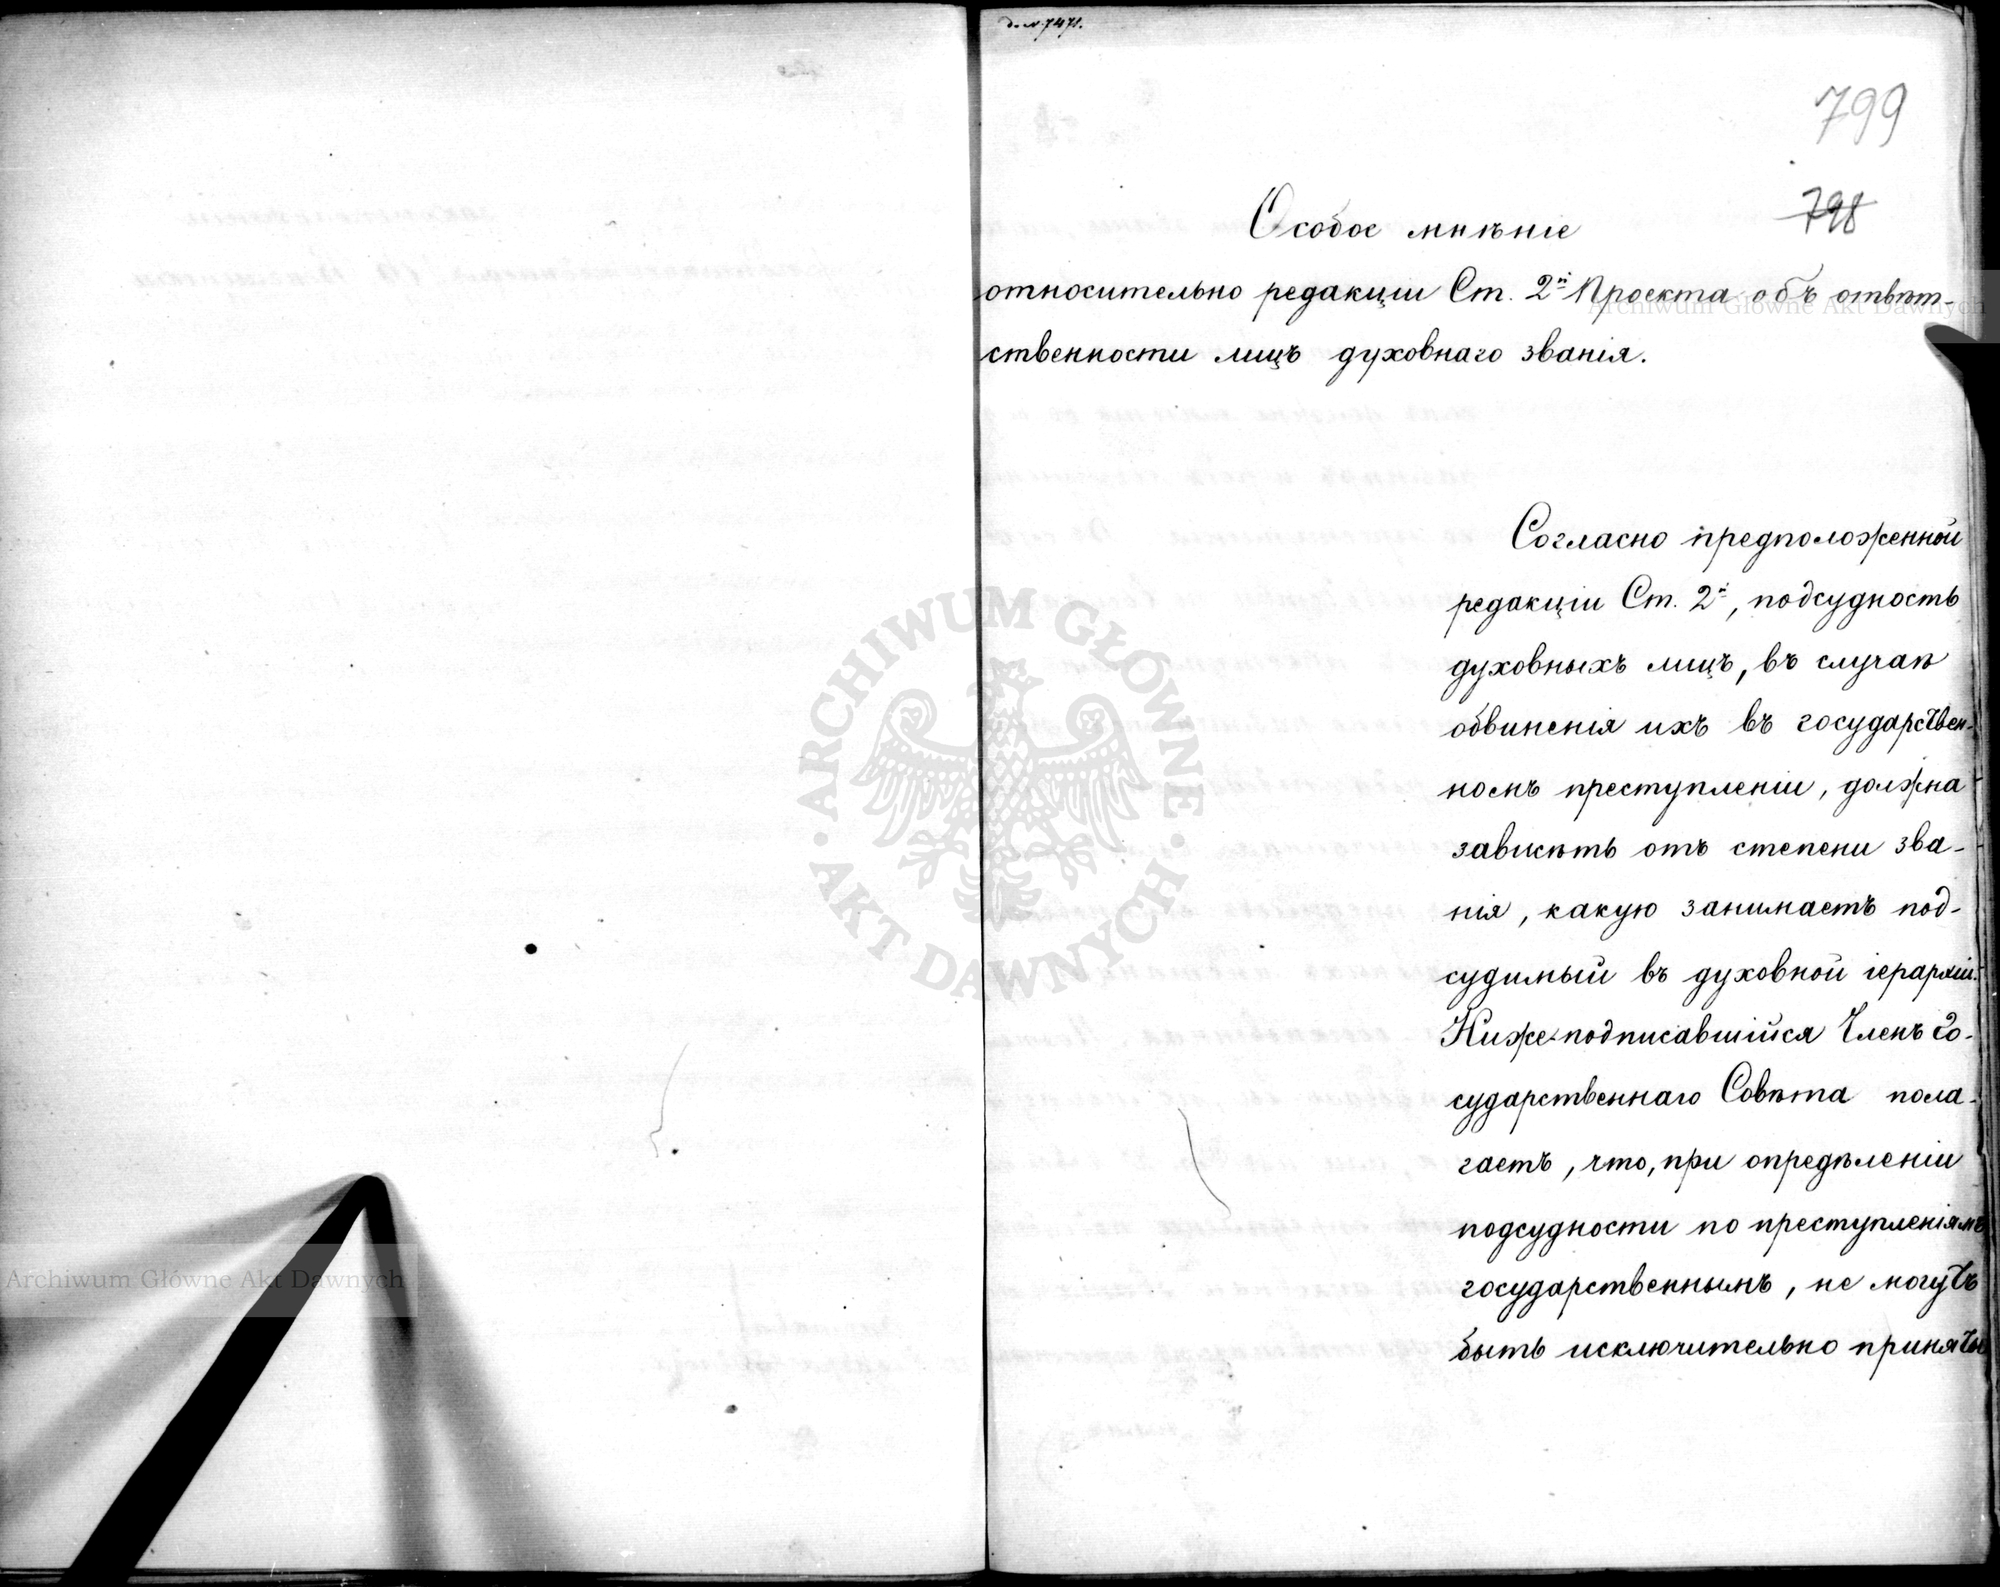 799
798
Особое мнѣніе
относительно редакціи Ст. 2й Проекта объ отвѣт-
ственности лицъ духовнаго званія.
Согласно предположенной
редакціи Ст. 2й, подсудность
духовныхъ лицъ, въ случаѣ
обвиненія ихъ въ государствен-
номъ преступленіи, должна
зависѣть отъ степени зва-
нія, какую занимаетъ под-
судимый въ духовной іерархіи.
Ниже-подписавшійся Членъ Го-
сударственнаго Совѣта пола-
гаетъ, что, при опредѣленіи
подсудности по преступленіямъ
государственнымъ, не могутъ
быть исключительно приняты
ARCHIWUM GŁÓWNE AKT DAWNYCH
Archiwum Główne Akt Dawnych
Archiwum Główne Akt Dawnych